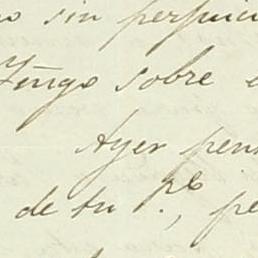 sin perjuici
Tengo sobre
Ayer pen
de tu P.e, pe